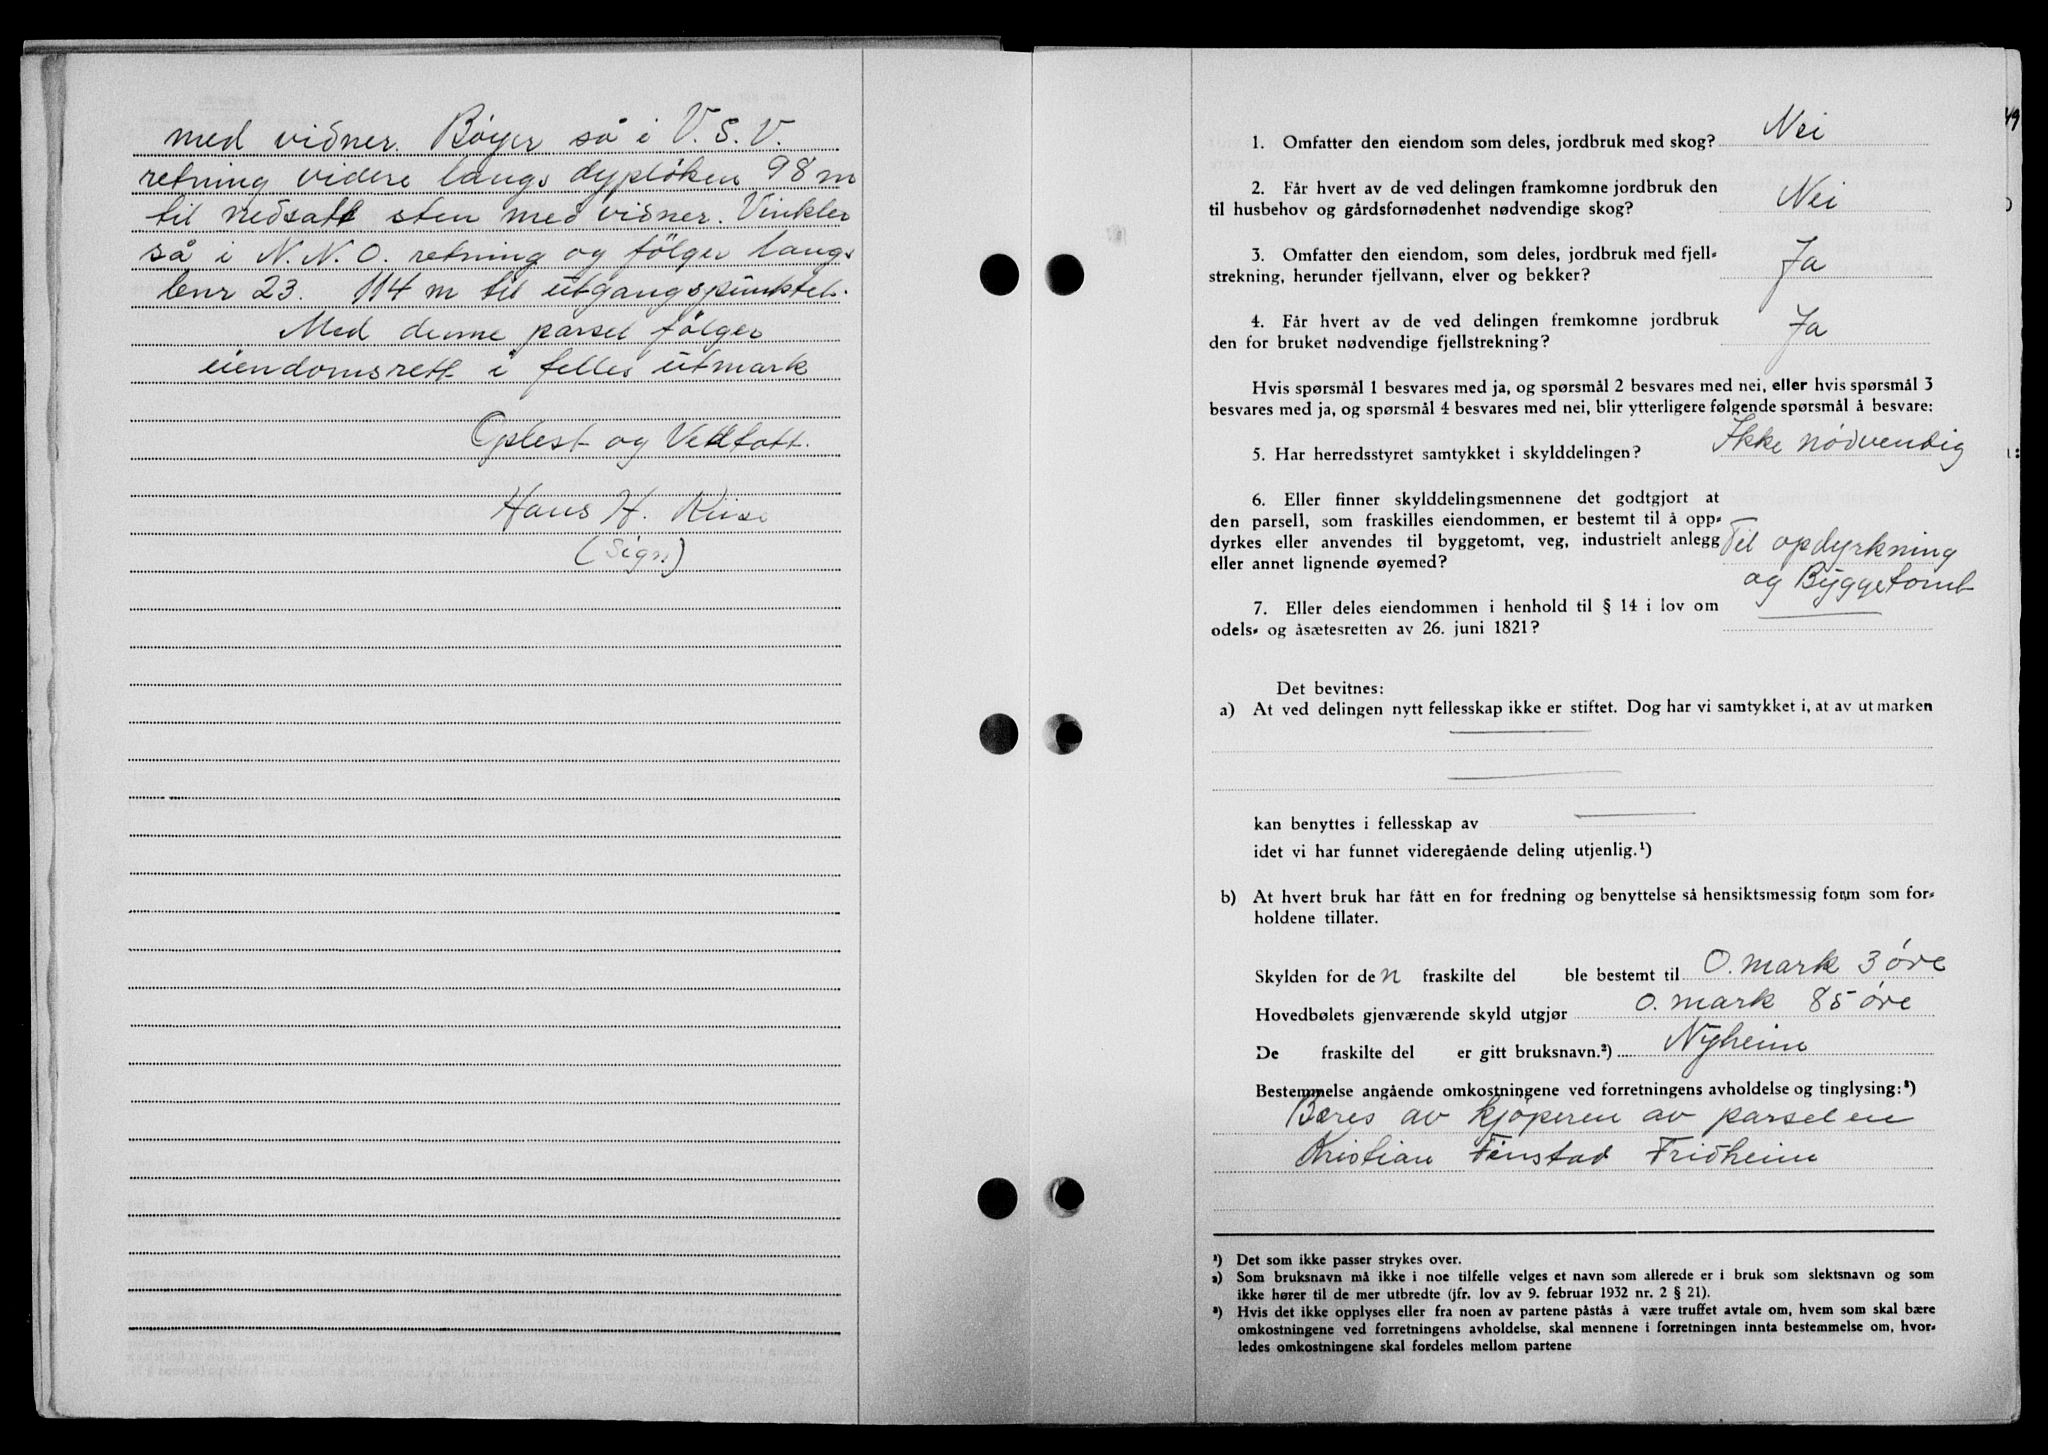 med vidner. Bøyer så i V.S.V.
retning videre langs dypløken 98 m
til nedsatt sten med vidner. Vinkler
så i N.N.O. retning og følger langs
bnr 23. 114 m til utgangspunktet.
Med denne parsel følger
eiendomsrett i felles utmark
Oplest og Vedtatt.
Hans H.
(Sign)
1. Omfatter den eiendom som deles, jordbruk med skog? Nei
2. Får hvert av de ved delingen framkomne jordbruk den
til husbehov og gårdsfornødenhet nødvendige skog? Nei
3. Omfatter den eiendom, som deles, jordbruk med fjell-
strekning, herunder fjellvann, elver og bekker? Ja
4. Får hvert av de ved delingen fremkomne jordbruk
den for bruket nødvendige fjellstrekning? Ja
Hvis spørsmål 1 besvares med ja, og spørsmål 2 besvares med nei, eller hvis spørsmål 3
besvares med ja, og spørsmål 4 besvares med nei, blir ytterligere følgende spørsmål å besvare:
5. Har herredsstyret samtykket i skylddelingen? Ikke nødvendig
6. Eller finner skylddelingsmennene det godtgjort at
den parsell, som fraskilles eiendommen, er bestemt til å opp-
dyrkes eller anvendes til byggetomt, veg, industrielt anlegg Til opdyrkning
eller annet lignende øyemed? og Byggetomt
7. Eller deles eiendommen i henhold til § 14 i lov om
odels- og åsætesretten av 26. juni 1821?
Det bevitnes:
a) At ved delingen nytt fellesskap ikke er stiftet. Dog har vi samtykket i, at av utmarken
kan benyttes i fellesskap av
idet vi har funnet videregående deling utjenlig.¹)
b) At hvert bruk har fått en for fredning og benyttelse så hensiktsmessig form som for-
holdene tillater.
Skylden for den fraskilte del ble bestemt til 0. mark 3 øre
Hovedbølets gjenværende skyld utgjør 0. mark 85 øre
De fraskilte del er gitt bruksnavn.²) Nyheim
Bestemmelse angående omkostningene ved forretningens avholdelse og tinglysing:³)
Bæres av kjøperen av parselen
Kristian Finstad Fridheim
¹) Det som ikke passer strykes over.
²) Som bruksnavn må ikke i noe tilfelle velges et navn som allerede er i bruk som slektsnavn og som
ikke hører til de mer utbredte (jfr. lov av 9. februar 1932 nr. 2 § 21).
³) Hvis det ikke opplyses eller fra noen av partene påstås å være truffet avtale om, hvem som skal bære
omkostningene ved forretningens avholdelse, skal mennene i forretningen innta bestemmelse om, hvor-
ledes omkostningene skal fordeles mellom partene